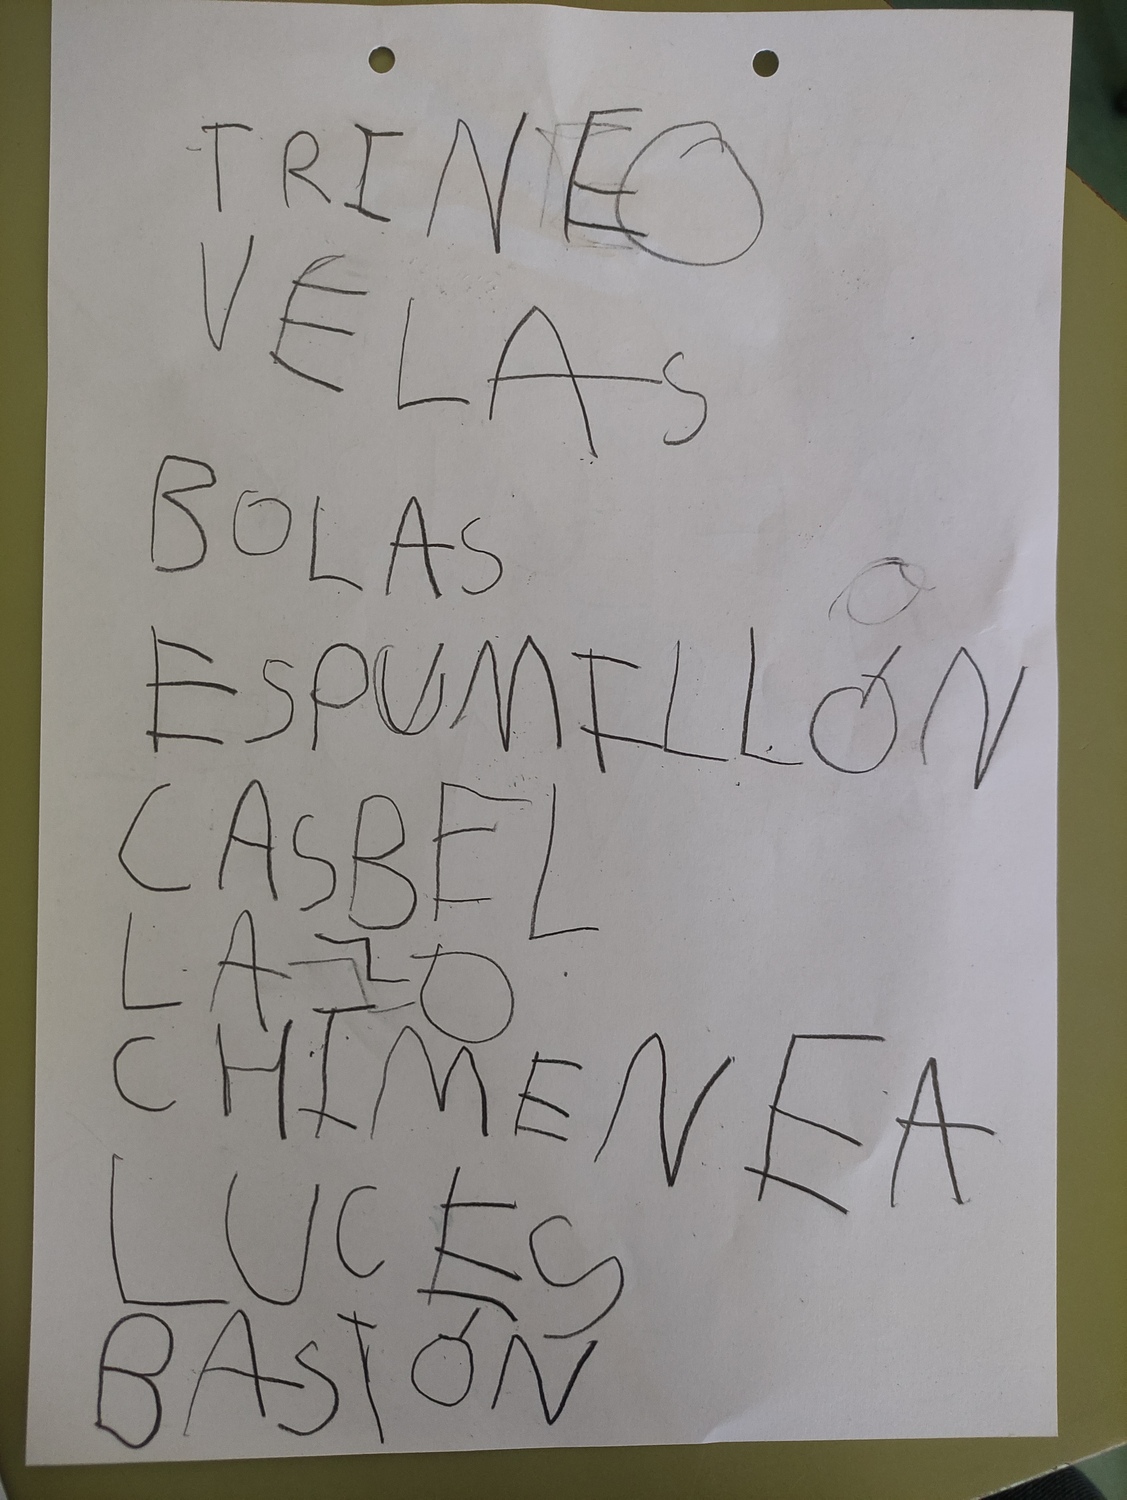 TRINEO
VELAS
BOLAS
ESPUMILLÓN
CASBEL
LAZO
CHIMENEA
LUCES
BASTÓN